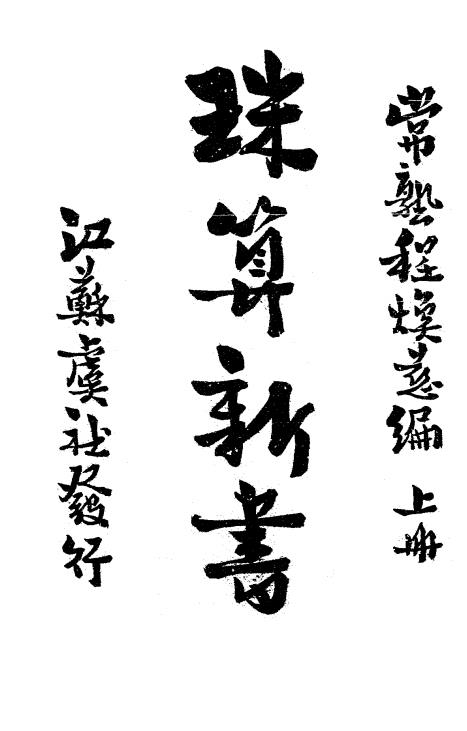 常熟程煥慈編 上册
珠算新書
江蘇虞社發行